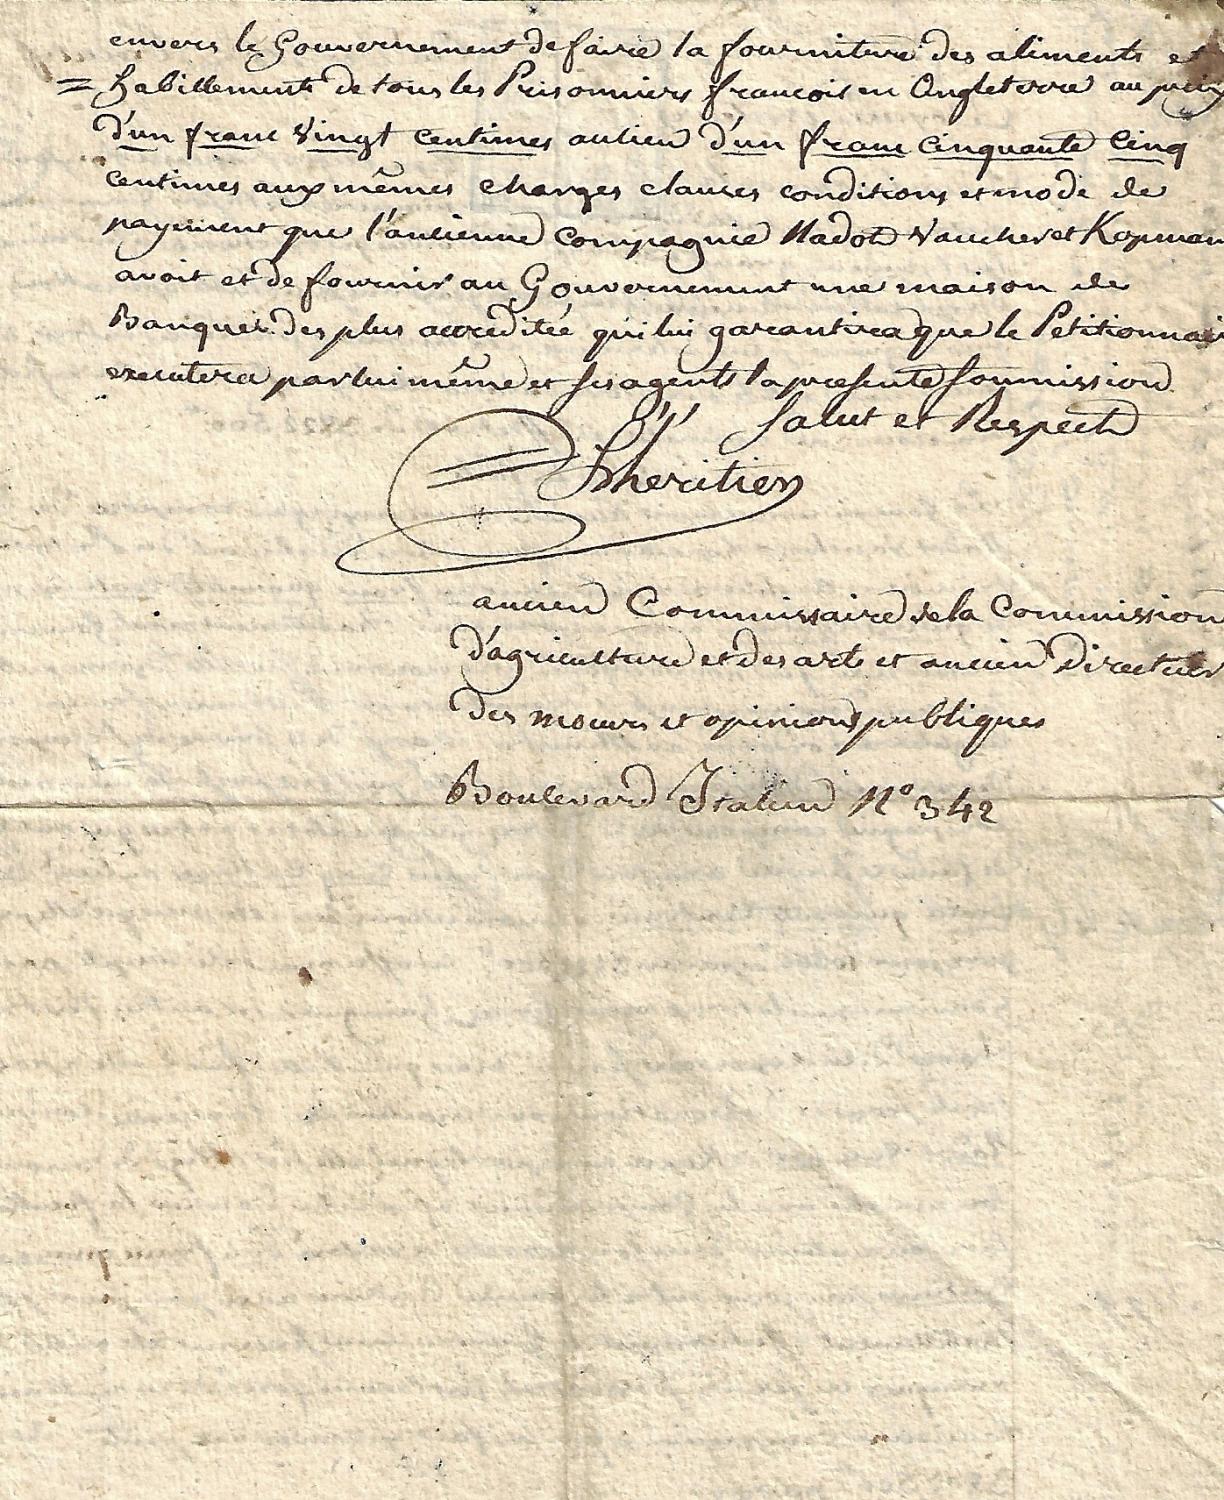 envers le Gouvernement de faire la fourniture des aliments et
= habillements de tous les Prisonniers francois en Angleterre au prix
d'un franc Vingt centimes aulieu d'un franc Cinquante Cinq
centimes aux mêmes charges clauses conditions et mode de
payement que l'ancienne Compagnie Nadot Vaucher et Kopman
avoit et de fournir au Gouvernement une maison de
Banque des plus accréditée qui lui garantira que le Petitionnair
executera par lui même et ses agents la presente Soumission
Salut et Respect
Lheritier
ancien Commissaire de la Commission
d'agriculture et des arts et ancien Directeur
des moeurs et opinions publiques
Boulevard Italien N° 342